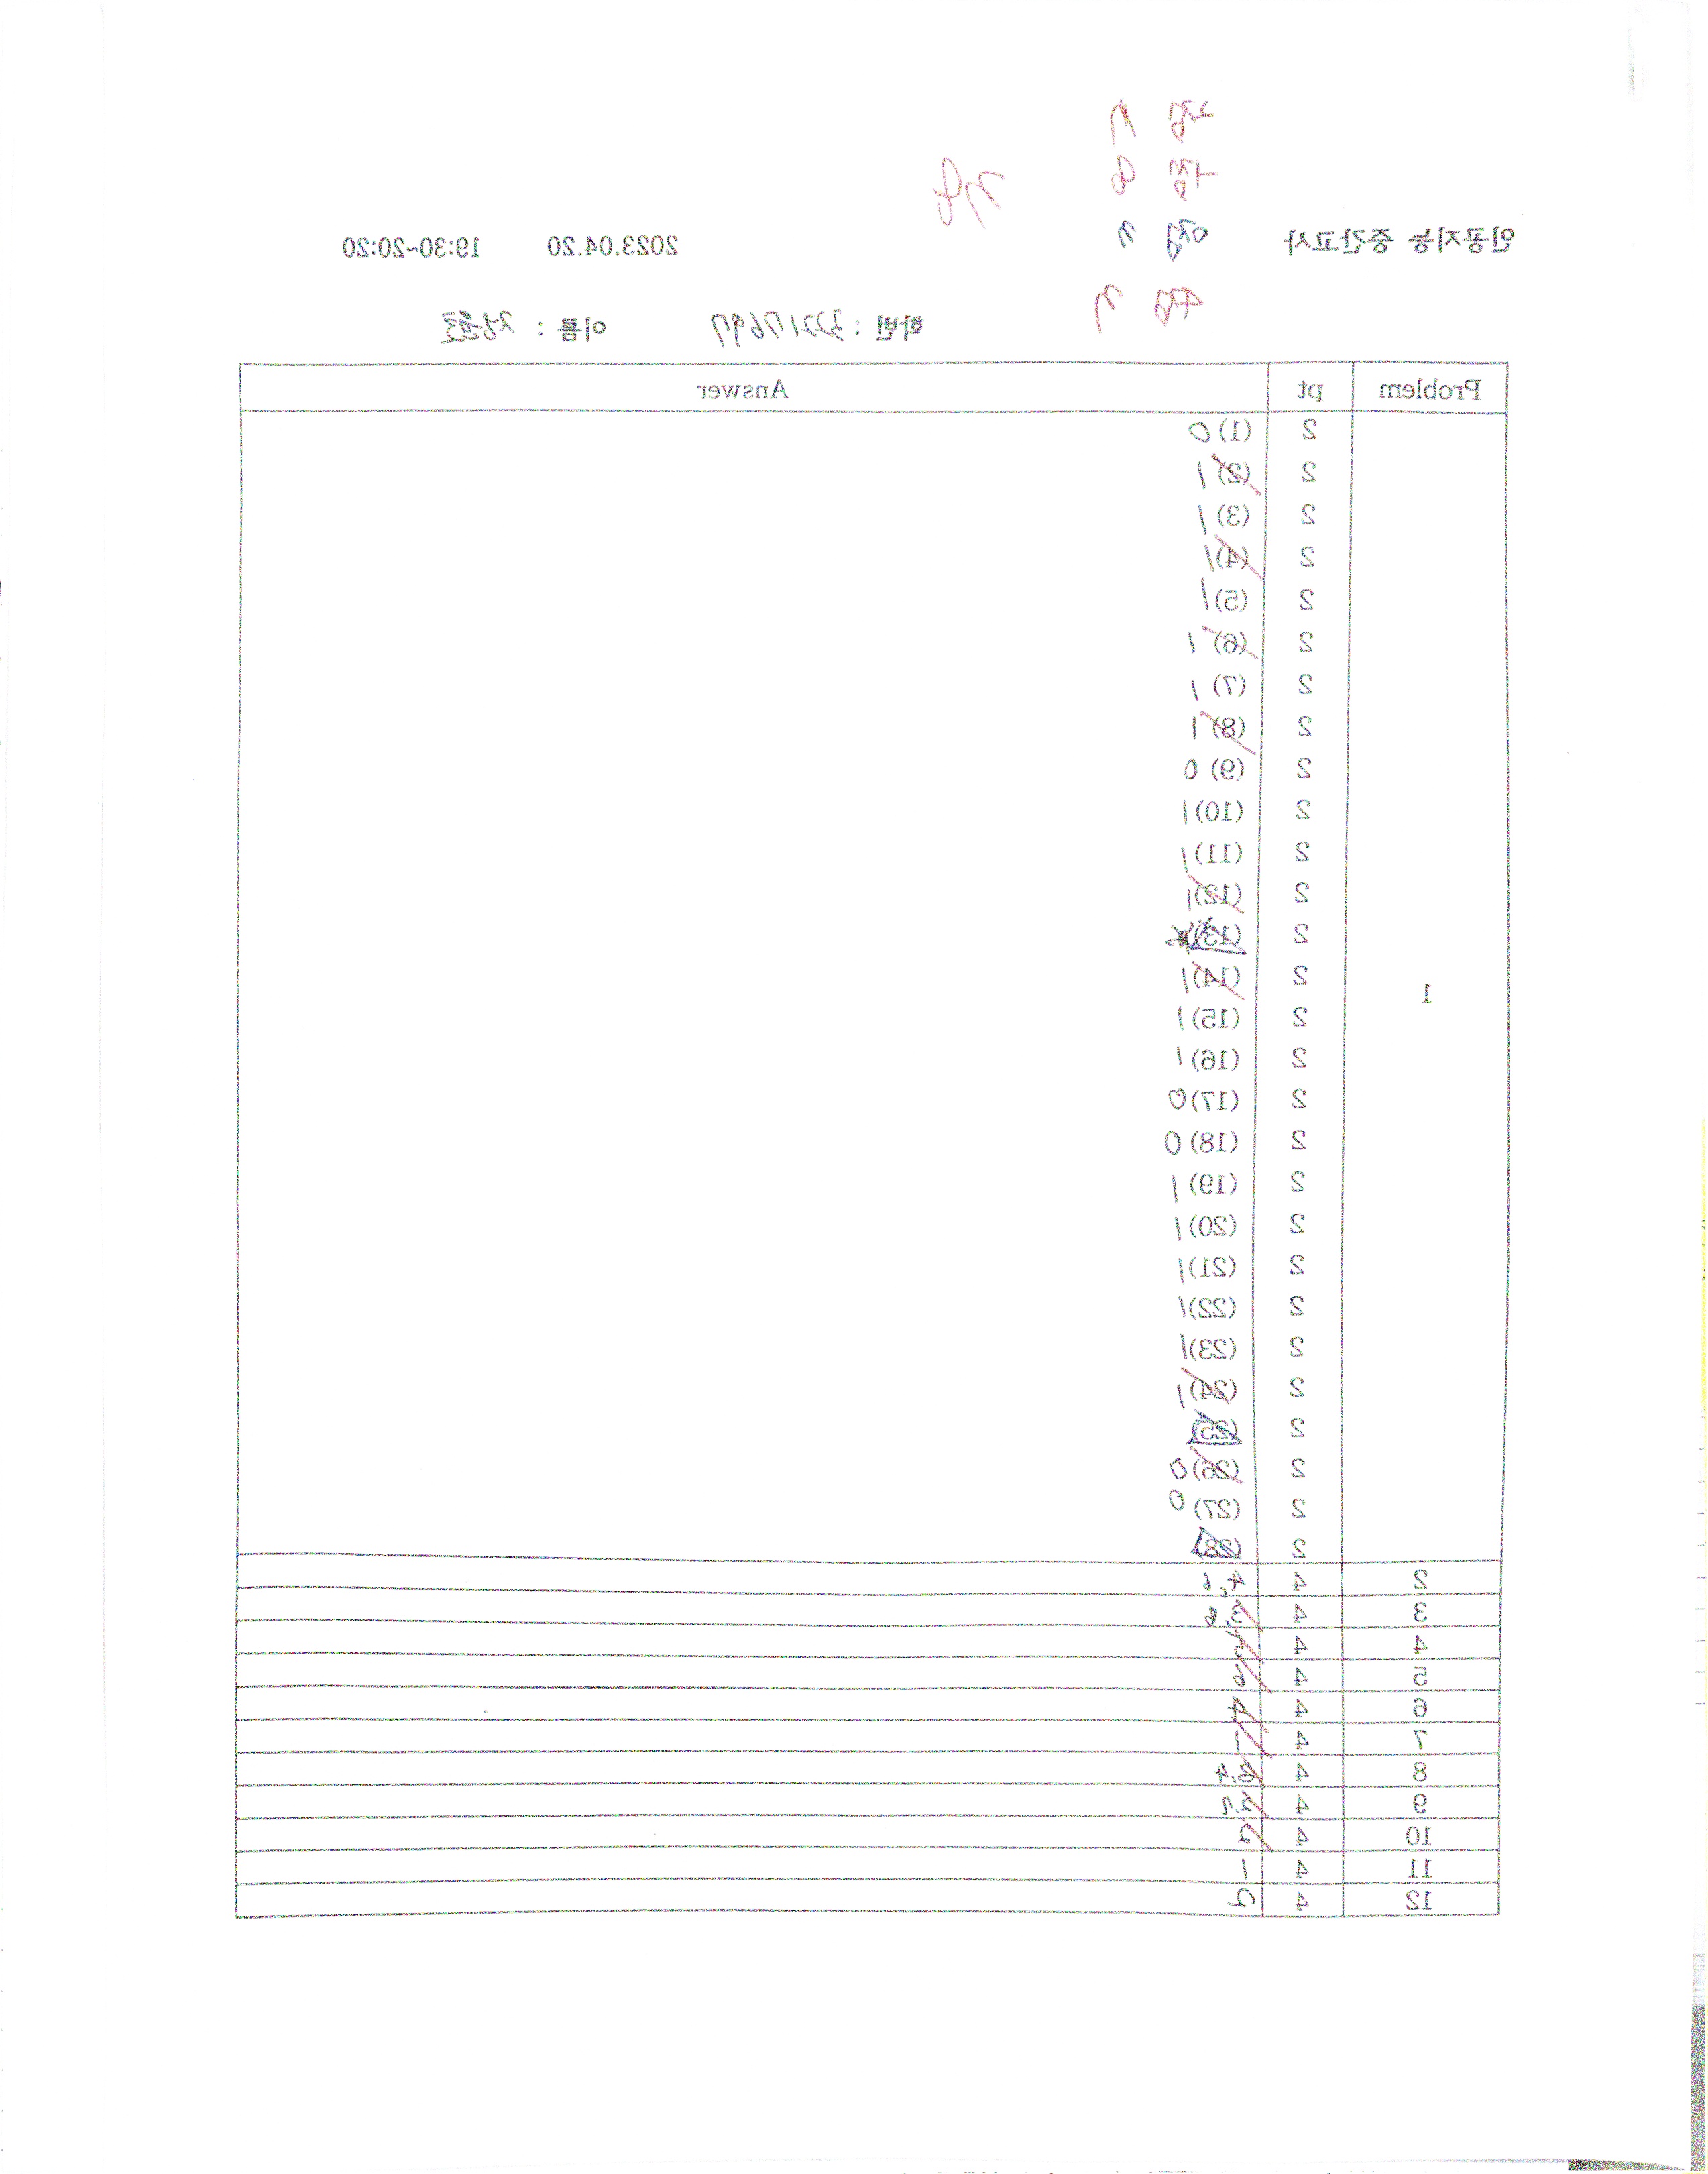 인공지능 중간고사 2023.04.20 19:30~20:20
학번 : 32217697 이름 :
Problem pt Answer
1
2 (1) 0
2 (2) 1
2 (3) 1
2 (4) 1
2 (5) 1
2 (6) 1
2 (7) 1
2 (8) 1
2 (9) 0
2 (10) 1
2 (11) 1
2 (12) 1
2 (13)
2 (14) 1
2 (15) 1
2 (16) 1
2 (17) 0
2 (18) 0
2 (19) 1
2 (20) 1
2 (21) 1
2 (22) 1
2 (23) 1
2 (24) 1
2 (25)
2 (26) 0
2 (27) 0
2 (28)
2 4 4, 6
3 4 3, 8
4 4
5 4
6 4 4
7 4
8 4
9 4
10 4
11 4
12 4